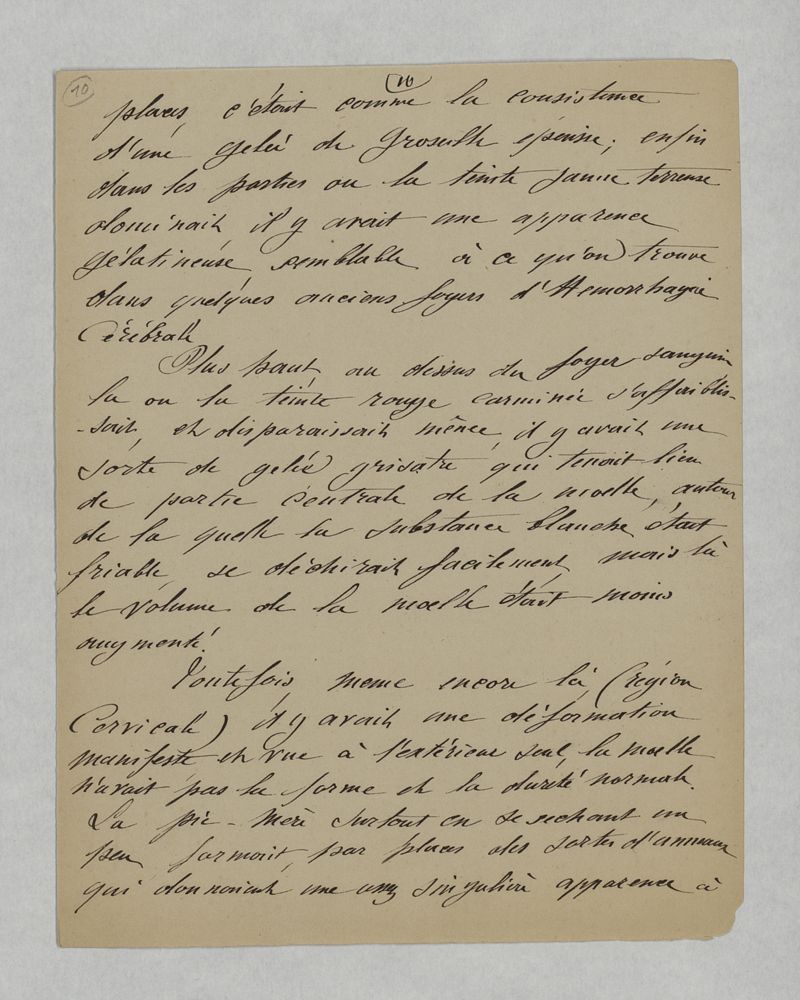 10
10
places, c'était comme la consistance
d'une gelée de Groseille épaisse; enfin
dans les parties ou la teinte jaune terreuse
dominait il y avait une apparence
gélatineuse semblable à ce qu'on trouve
dans quelques anciens foyers d'Hemorrhagie
Cérébrale
Plus haut, au dessus du foyer sanguin
la ou la teinte rouge carminée s'affaiblis-
-sait, et disparaissait même, il y avait une
sorte de gelée grisatre qui tenait lieu
de partie Centrale de la moelle, autour
de la quelle la substance blanche était
friable, se déchirait facilement, mais là
le volume de la moelle était moins
augmenté.
Toutefois, meme encore là, (région
Cervicale) il y avait une déformation
manifeste et vue à l'extérieur seul, la moelle
n'avait pas la forme et la dureté normale.
La pie-mère surtout en se sechant un
peu formait, par places des sortes d'anneaux
qui donnaient une assez singulière apparence à